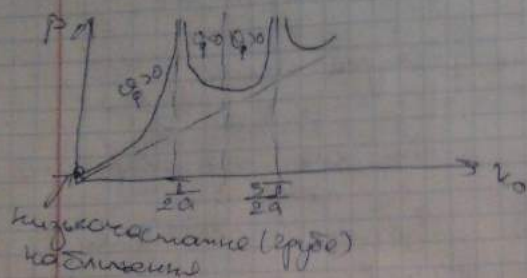 β
υ_q>0
υ_q<0
υ_q>0
π/2a
3π/2a
ν₀
низькочастотне (грубе)
наближення